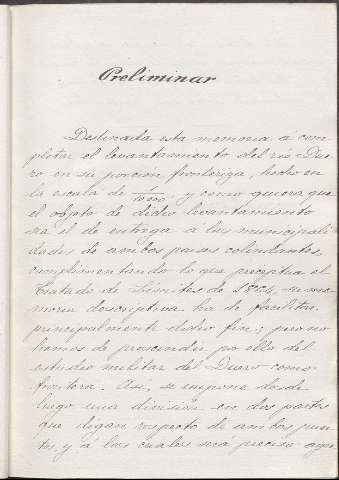 Preliminar
Destinada esta memoria á com-
pletar el levantamiento del rio Due-
ro en su porción fronteriza, hecho en
la escala de 1/10.000, y como quiera que
el objeto de dicho levantamiento
sea el de entrega á las municipali-
dades de ambos paises colindantes,
cumplimentando lo que preceptua el
Tratado de Límites de 1864, su me-
moria descriptiva ha de facilitar
principalmente dicho fin; pero no
hemos de prescindir por ello del
estudio militar del Duero como
frontera. Asi, se impone desde
luego una división en dos partes
que digan respecto de ambos pun-
tos, y á las cuales será preciso